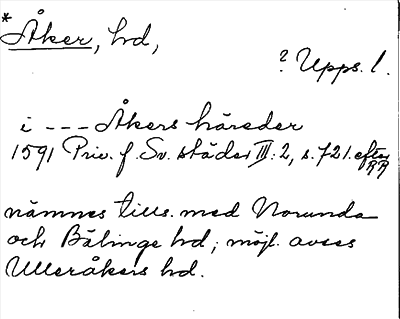 * Åker, hd,
? Upps. l.
i --- Åkers häreder
1591 Priv. f. Sv. städer III: 2, s. 721. efter
RR
nämnes tills. med Norunda
och Bälinge hd; möjl. avses
Ulleråkers hd.